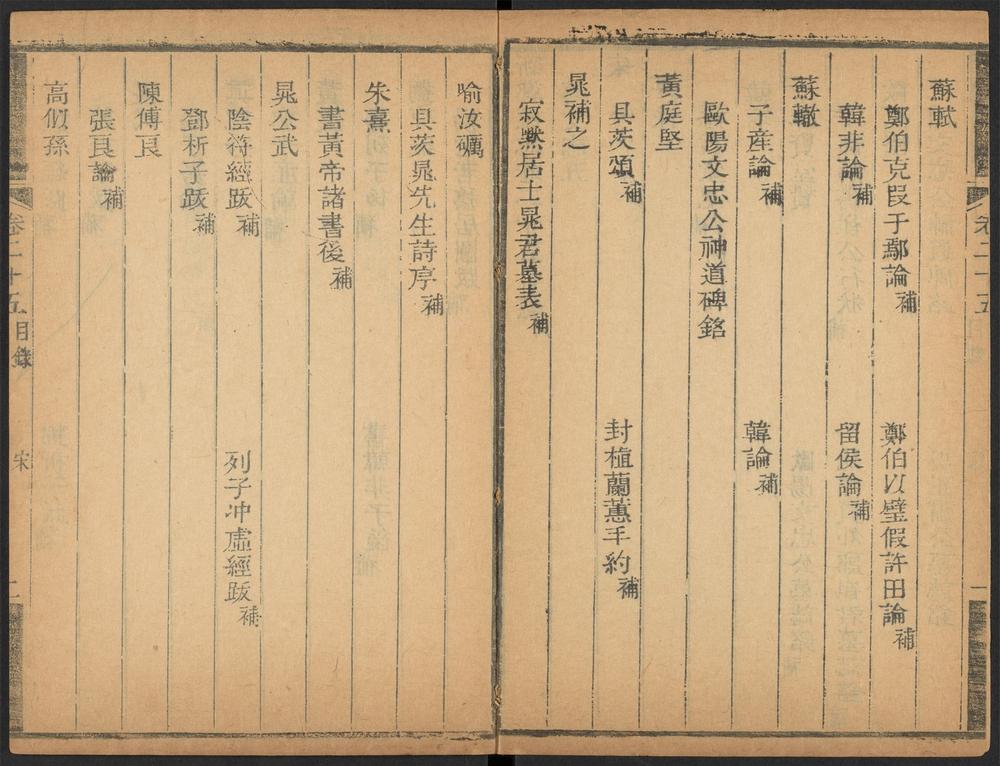 蘇軾
鄭伯克段于鄢論補 鄭伯以璧假許田論補
韓非論補 留侯論補
蘇轍
子產論補 韓論補
歐陽文忠公神道碑銘
黃庭堅
具茨頌補 封植蘭蕙手約補
晁補之
寂默居士晁君墓表補
喻汝礪
具茨晁先生詩序補
朱熹
書黃帝諸書後補
晁公武
陰符經跋補 列子冲虛經跋補
鄧析子跋補
陳傅良
張良論補
高似孫
卷二十五目錄 宋 二